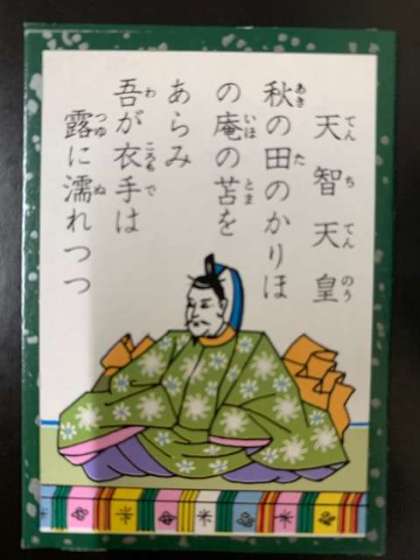 天智天皇
秋の田のかりほ
の庵の苫を
あらみ
吾が衣手は
露に濡れつつ